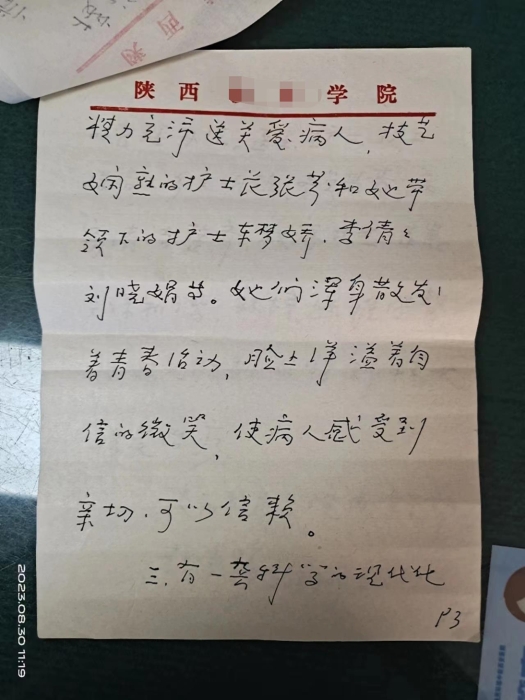 陕西 学院
精力充沛送关爱病人，技艺
娴熟的护士长张芳和她带
领下的护士车梦娇、李倩、
刘晓娟等。她们浑身散发
着青春活动，脸上洋溢着自
信的微笑，使病人感受到
亲切、可以信赖。
三、有一套科学的现代化
P3
2023.08.30 11:19